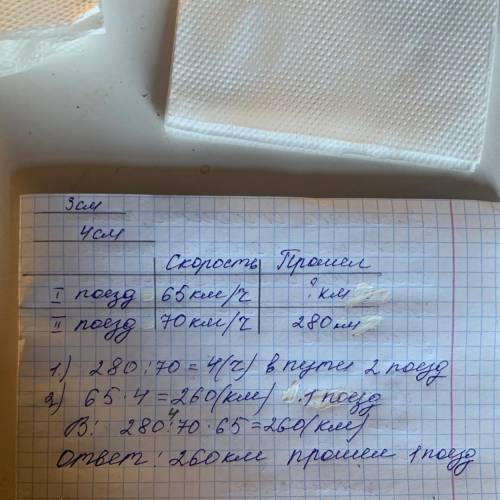 3см
4см
Скорость Прошел
I поезд 65 км/ч ? км
II поезд 70 км/ч 280 км
1) 280 : 70 = 4(ч) в пути 2 поезд
2) 65 · 4 = 260(км) 1 поезд
4
В: 280 : 70 · 65 = 260(км)
Ответ : 260 км прошел 1 поезд